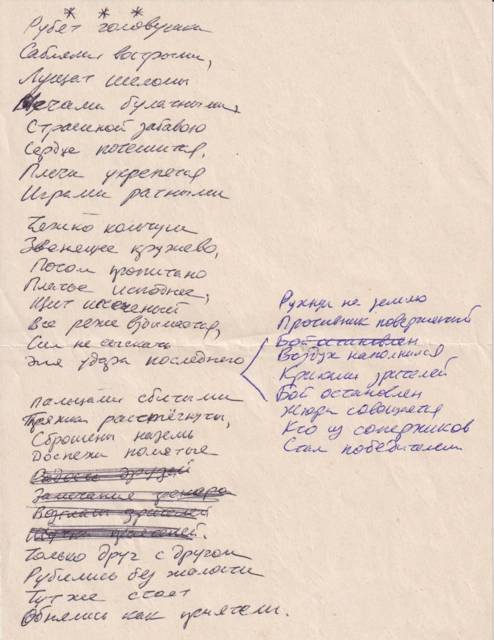 * * *
Рубят головушки
Саблями вострыми,
Лущат шеломы
Мечами булатными,
Страшной забавою
Сердце потешится,
Плечи укрепятся
Играми ратными
Тяжко кольчуги
Звенящее кружево,
Потом пропитано
Платье исподнее,
Щит иссеченый
Все реже вздымается,
Сил не сыскать
Для удара последнего
Рухнул на землю
Противник поверженый
Бой остановлен
Воздух наполнился
Криками зрителей
Бой остановлен
Жюри совещается
Кто из соперников
Стал победителем
Пальцами сбитыми
Пряжки расстёгнуты,
Сброшены наземь
Доспехи помятые
друзей
Замечания
Возгласы зрителей
Только друг с другом
Рубились без жалости
Тут же стоят
Обнялись как приятели.